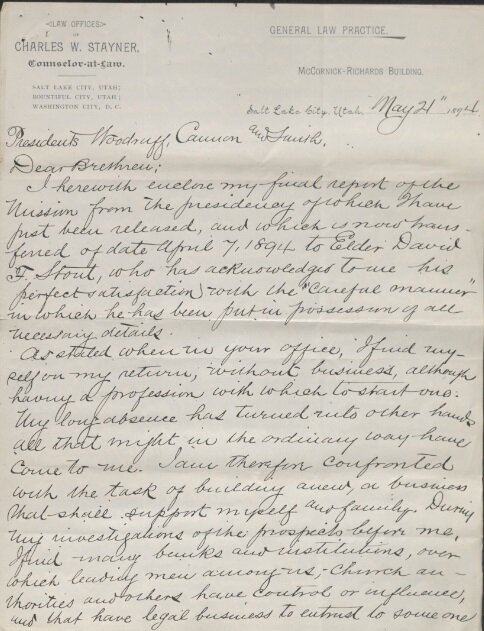 LAW OFFICES
OF
CHARLES W. STAYNER,
Counselor-at-Law.
SALT LAKE CITY, UTAH;
BOUNTIFUL CITY, UTAH;
WASHINGTON CITY, D. C.
GENERAL LAW PRACTICE.
McCORNICK-RICHARDS BUILDING.
Salt Lake City, Utah, May 21" 1894
Presidents Woodruff, Cannon and Smith.
Dear Brethren;
I herewith enclose my final report of the
Mission from the presidency of which I have
just been released, and which is now trans-
ferred of date April 7, 1894 to Elder David
F. Stout, who has acknowledged to me his
perfect satisfaction with the "careful manner"
in which he has been put in possession of all
necessary details.
As stated when in your office, I find my-
self on my return, without business, although
having a profession with which to start one.
My long absence has turned into other hands
all that might in the ordinary way have
come to me. I am therefore confronted
with the task of building anew, a business
that shall support myself and family. During
my investigations of the prospects before me,
I find many banks and institutions, over
which leading men among us, Church au-
thorities and others have control or influence,
and that have legal business to entrust to some one